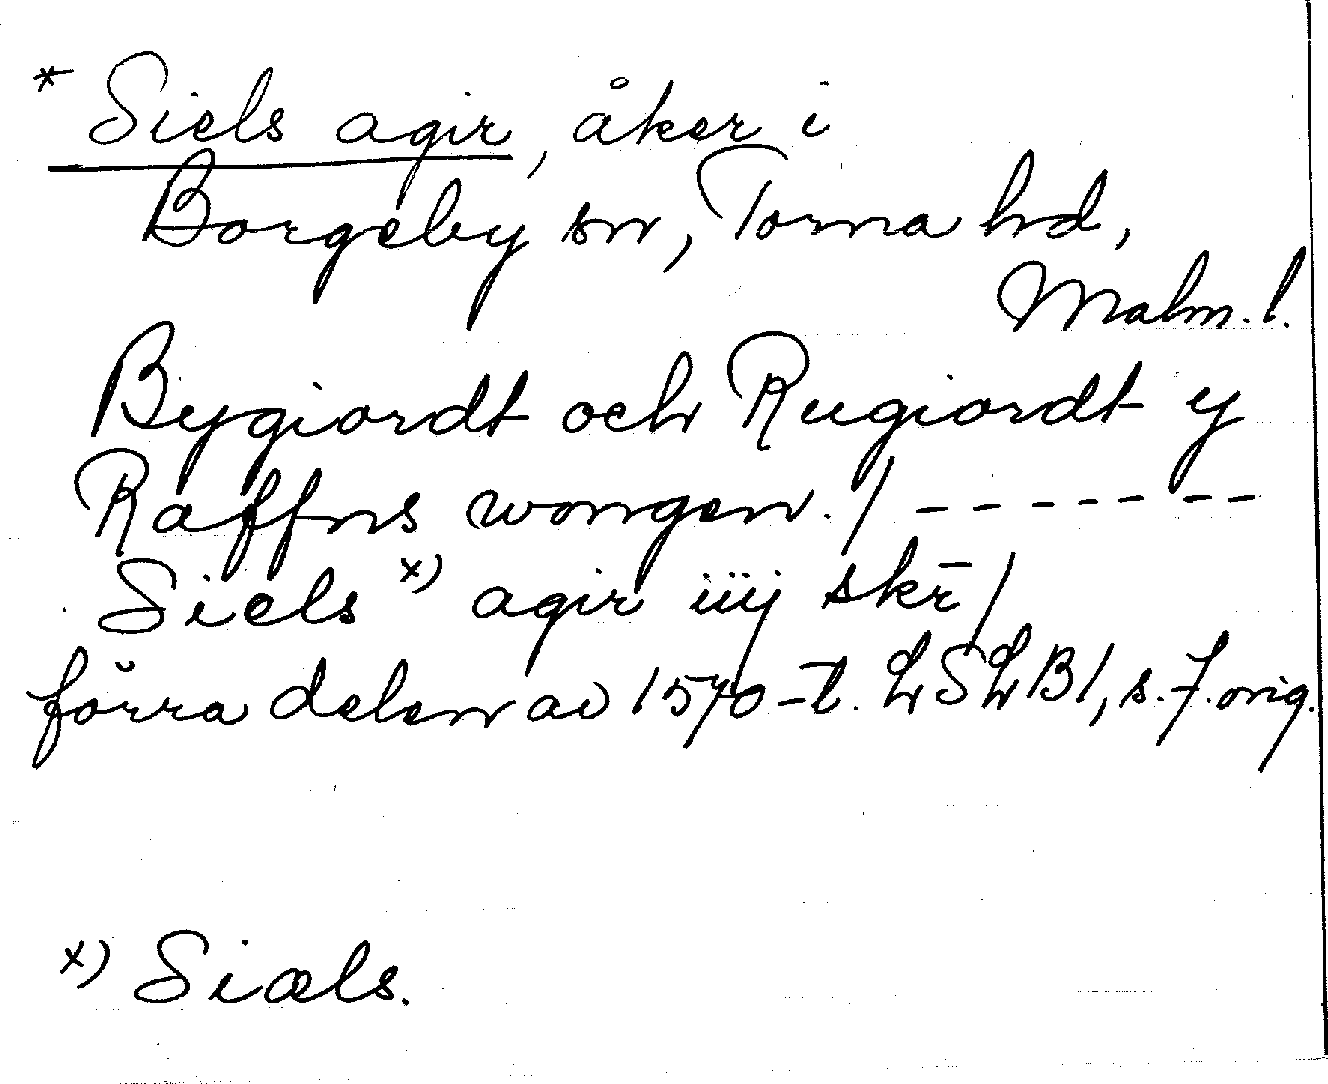 * Siels agir, åker i
Borgeby sn, Torna hd,
Malm. l.
Bygiordt och Rugiordt y
Raffns wongen. / - - - - - - -
Siels x) agir iiij skr̄ /
förra delen av 1570-t. LSLB1, s. 7. orig.
x) Siæls.